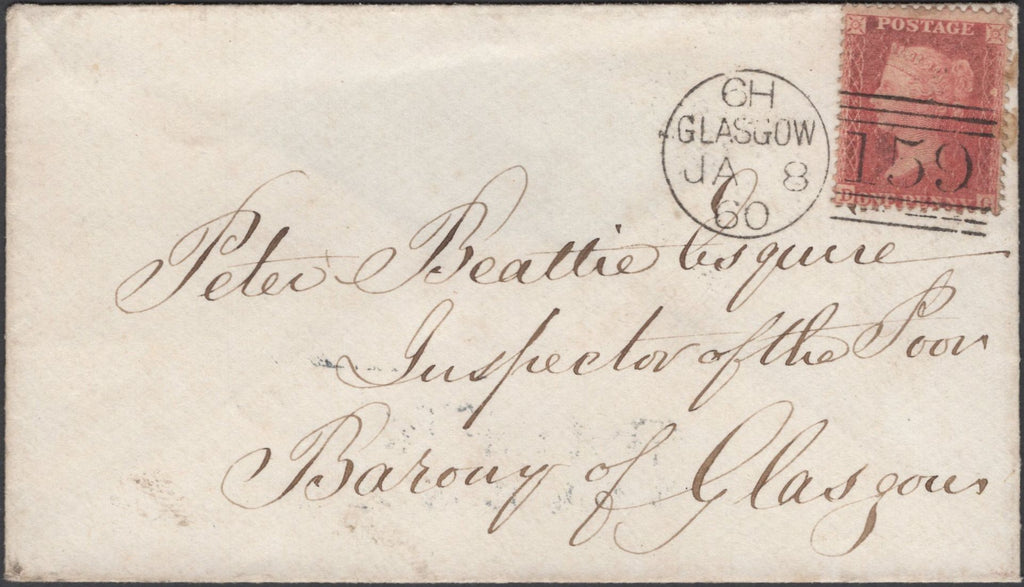 POSTAGE
6H
GLASGOW
JA 8
60
159
D ONE PENNY G
Peter Beattie Esquire
Inspector of the Poor
Barony of Glasgow